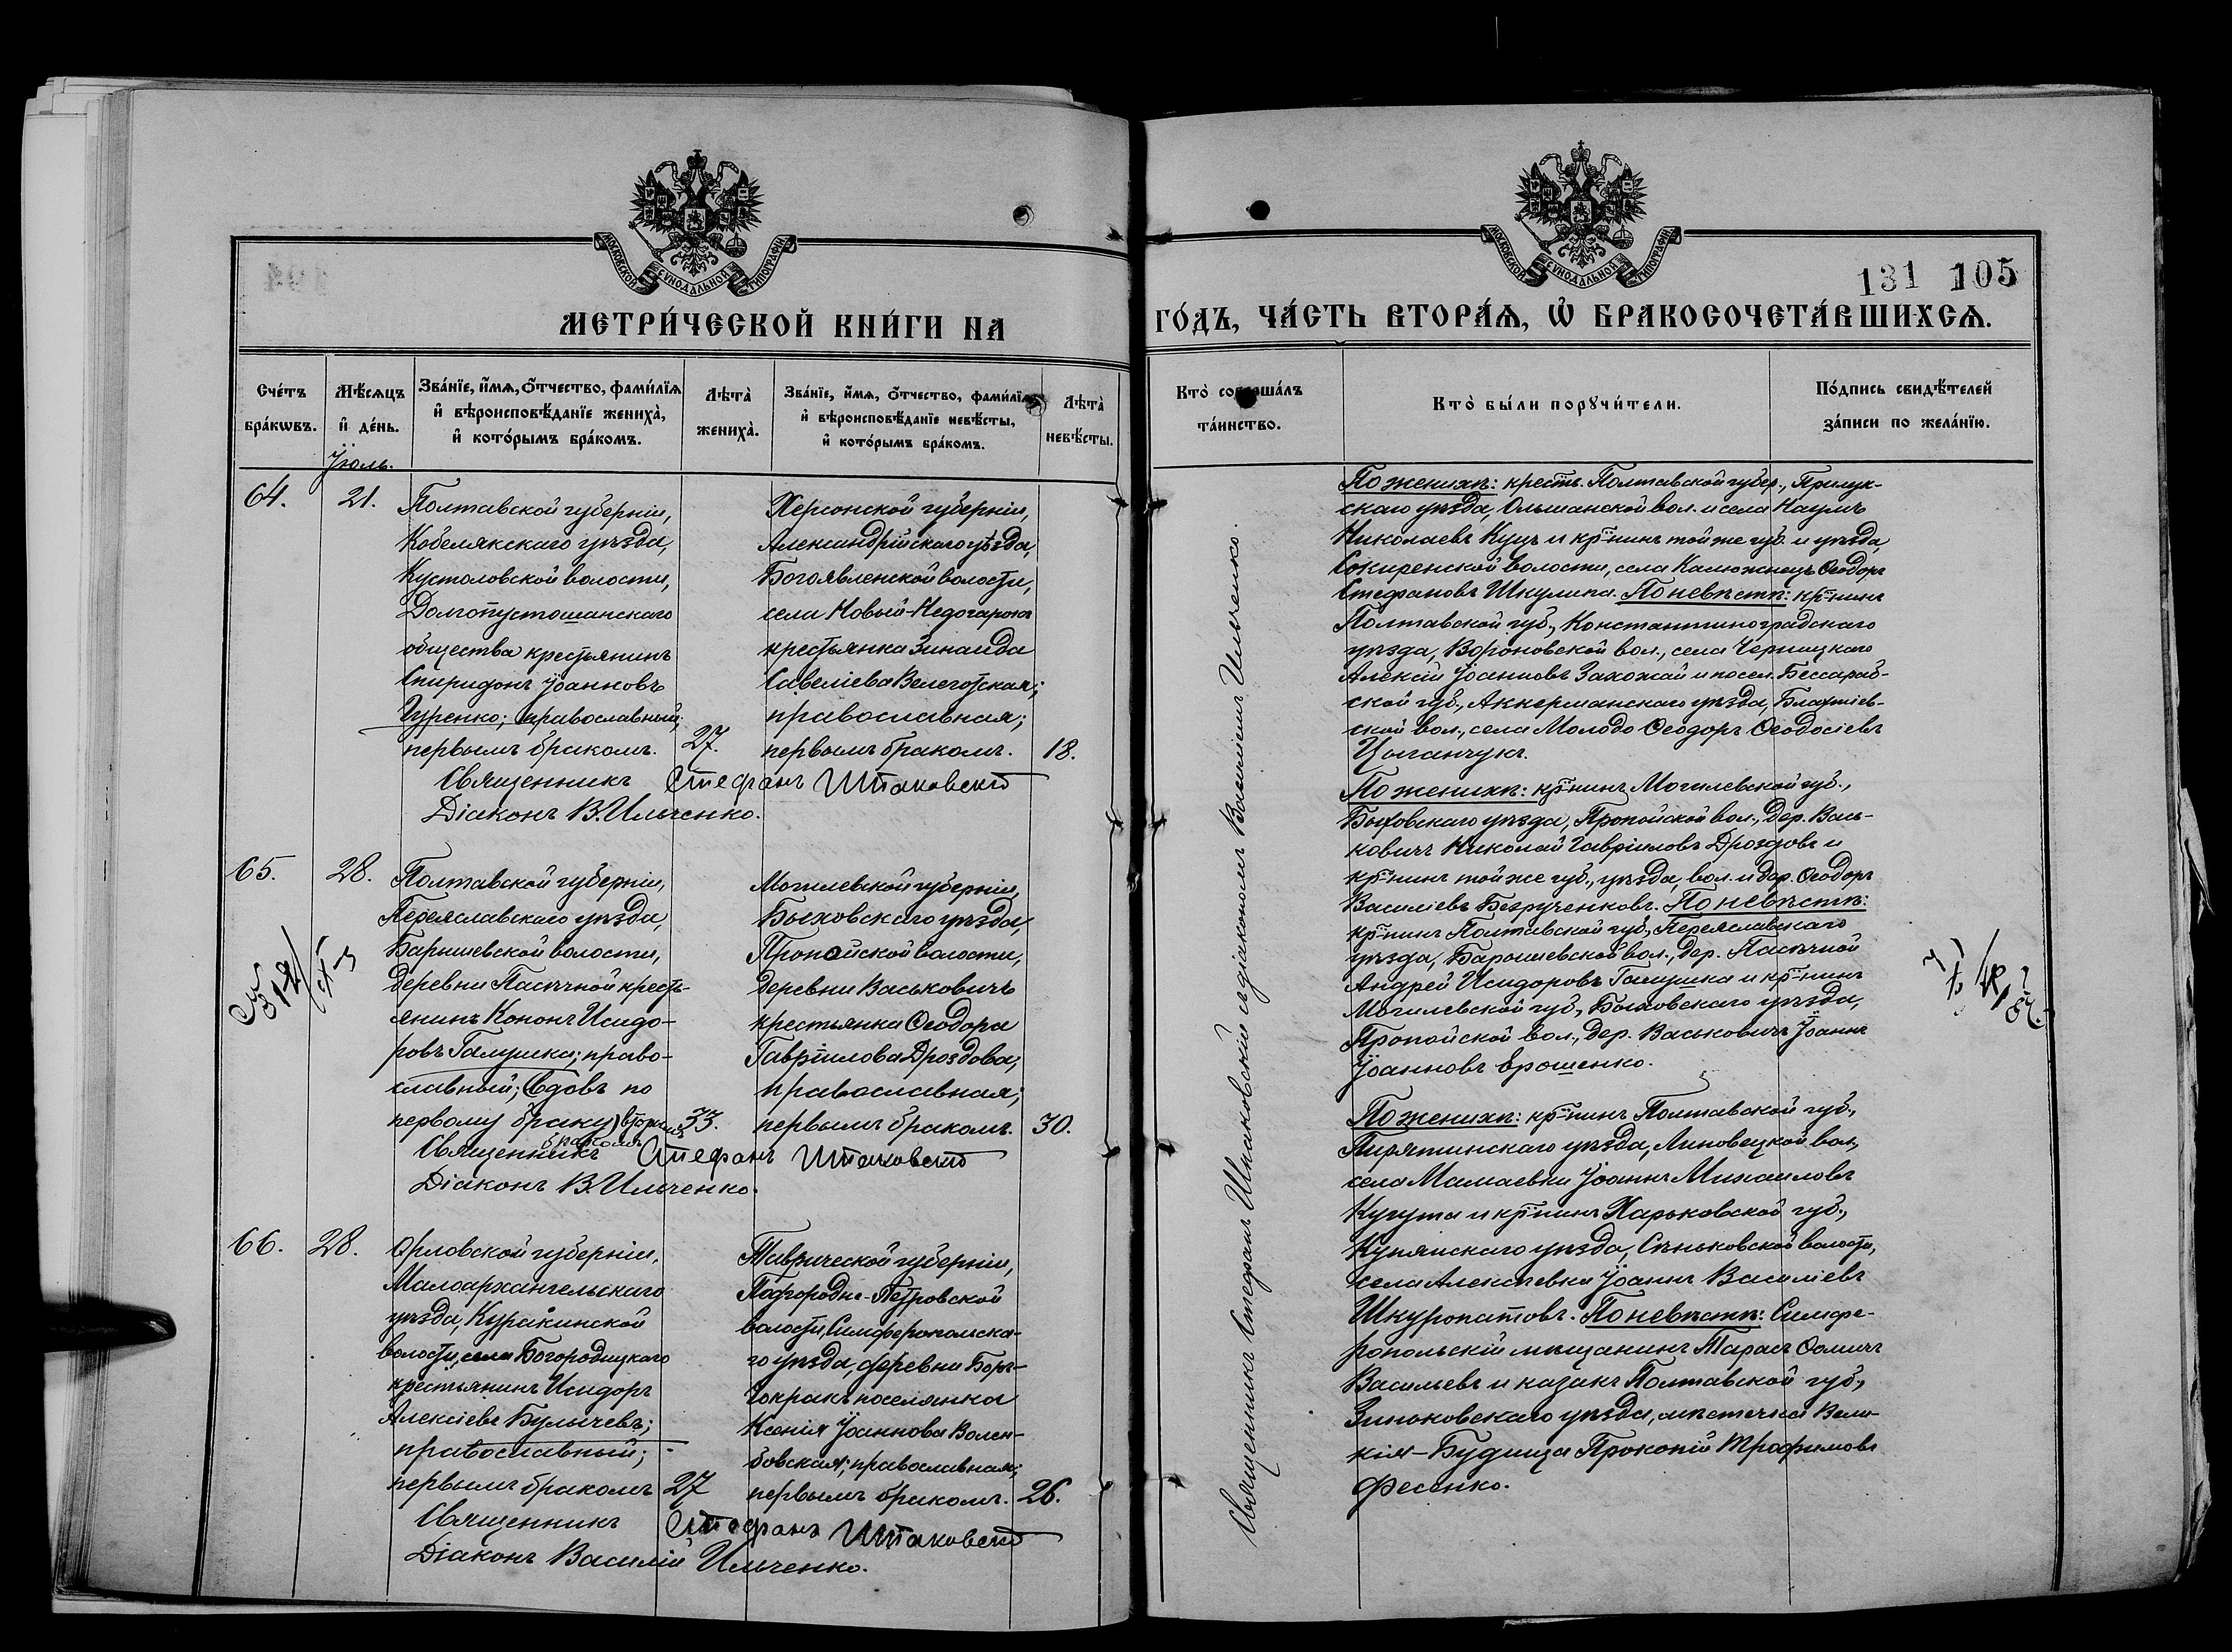 МОСКОВСКОЙ СѴНОДАЛЬНОЙ ТИПОГРАФІИ
МЕТРИ́ЧЕСКОЙ КНИ́ГИ НА
Сче́тъ бра́кωвъ.
Мѣ́сѧцъ и҆ де́нь.
Зва́нїе, и҆́мѧ, ѻ҆́тчество, фами́лїѧ
и҆ вѣроисповѣ́данїе жениха̀,
и҆ кото́рымъ бра́комъ.
Лѣта̀ жениха̀.
Зва́нїе, и҆́мѧ, ѻ҆́тчество, фами́лїѧ
и҆ вѣроисповѣ́данїе невѣ́сты,
и҆ кото́рымъ бра́комъ.
Лѣта̀ невѣ́сты.
Іюль.
64.
21.
Полтавской губерніи,
Кобелякскаго уѣзда,
Кустоловской волости,
Долгопустошанскаго
общества крестьянинъ
Спиридонъ Іоанновъ
Гуренко; православный;
первымъ бракомъ.
27.
Херсонской губерніи,
Александрійскаго уѣзда,
Богоявленской волости,
села Новый-Недогарокъ
крестьянка Зинаида
Савеліева Велеготская;
православная;
первымъ бракомъ.
18.
Священникъ Стефанъ Шпаковскій
Діаконъ В. Ильченко.
65.
28.
Полтавской губерніи,
Переяславскаго уѣзда,
Барышевской волости,
деревни Пасѣчной кресть-
янинъ Кононъ Исидо-
ровъ Галушка; право-
славный; (вдовъ по
первому браку) вторымъ
бракомъ
33.
Могилевской губерніи,
Быховскаго уѣзда,
Пропойской волости,
деревни Васьковичъ
крестьянка Ѳеодора
Гавріилова Дроздова;
православная;
первымъ бракомъ.
30.
Священникъ Стефанъ Шпаковскій
Діаконъ В. Ильченко.
66.
28.
Орловской губерніи,
Малоархангельскаго
уѣзда, Куракинской
волости, села Богородицкаго
крестьянинъ Исидоръ
Алексіевъ Булычевъ;
православный;
первымъ бракомъ
27
Таврической губерніи,
Подгородне-Петровской
волости, Симферопольска-
го уѣзда, деревни Боръ-
Чокракъ поселянка
Ксенія Іоаннова Волем-
бовская; православная;
первымъ бракомъ.
26.
Священникъ Стефанъ Шпаковскій
Діаконъ Василій Ильченко.
МОСКОВСКОЙ СѴНОДАЛЬНОЙ ТИПОГРАФІИ
131 105
ГО́ДЪ, ЧА́СТЬ ВТОРА́Ѧ, Ѽ БРАКОСОЧЕТА́ВШИХСѦ.
Кто̀ соверша́лъ
та́инство.
Кто̀ бы́ли порꙋчи́тели.
По́дпись свидѣ́телей
за́писи по жела́нїю.
Священникъ Стефанъ Шпаковскій съ діакономъ Василіемъ Ильченко.
По женихѣ: кресть. Полтавской губер., Прилук-
скаго уѣзда, Ольшанской вол. и села Наумъ
Николаевъ Куцъ и кр-нинъ той же губ. и уѣзда,
Сокиренской волости, села Калюжнецъ Ѳеодоръ
Стефановъ Шкулипа. По невѣстѣ: кр-нинъ
Полтавской губ., Константиноградскаго
уѣзда, Вороновской вол., села Черницкаго
Алексій Іоанновъ Захожай и посел. Бессараб-
ской губ., Аккерманскаго уѣзда,
ской вол., села Молодо Ѳеодоръ Ѳеодосіевъ
Цыганчукъ.
По женихѣ: кр-нинъ Могилевской губ.,
Быховскаго уѣзда, Пропойской вол., дер. Вась-
ковичъ Николай Гавріиловъ Дроздовъ и
кр-нинъ той же губ., уѣзда, вол. и дер. Ѳеодоръ
Василіевъ Безрученковъ. По невѣстѣ:
кр-нинъ Полтавской губ., Переяславскаго
уѣзда, Барышевской вол., дер. Пасѣчной
Андрей Исидоровъ Галушка и кр-нинъ
Могилевской губ., Быховскаго уѣзда,
Пропойской вол., дер. Васьковичъ Іоаннъ
Іоанновъ Ерошенко.
По женихѣ: кр-нинъ Полтавской губ.,
Пирятинскаго уѣзда, Линовецкой вол.,
села Мамаевки Іоаннъ Михаиловъ
Кугута и кр-нинъ Харьковской губ.,
Купянскаго уѣзда, Сѣньковской волости,
села Алексѣевки Іоаннъ Василіевъ
Шкуропатовъ. По невѣстѣ: Симфе-
ропольскій мѣщанинъ Тарасъ Ѳомичъ
Васильевъ и казакъ Полтавской губ.,
Зиньковскаго уѣзда, мѣстечка Вели-
кія-Будища Прокопій Трофимовъ
Фесенко.